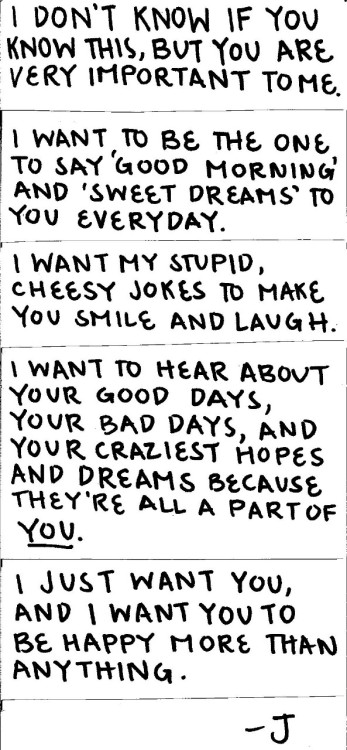 I DON'T KNOW IF YOU
KNOW THIS, BUT YOU ARE
VERY IMPORTANT TO ME.
I WANT TO BE THE ONE
TO SAY 'GOOD MORNING'
AND 'SWEET DREAMS' TO
YOU EVERYDAY.
I WANT MY STUPID,
CHEESY JOKES TO MAKE
YOU SMILE AND LAUGH.
I WANT TO HEAR ABOUT
YOUR GOOD DAYS,
YOUR BAD DAYS, AND
YOUR CRAZIEST HOPES
AND DREAMS BECAUSE
THEY'RE ALL A PART OF
YOU.
I JUST WANT YOU,
AND I WANT YOU TO
BE HAPPY MORE THAN
ANYTHING.
-J